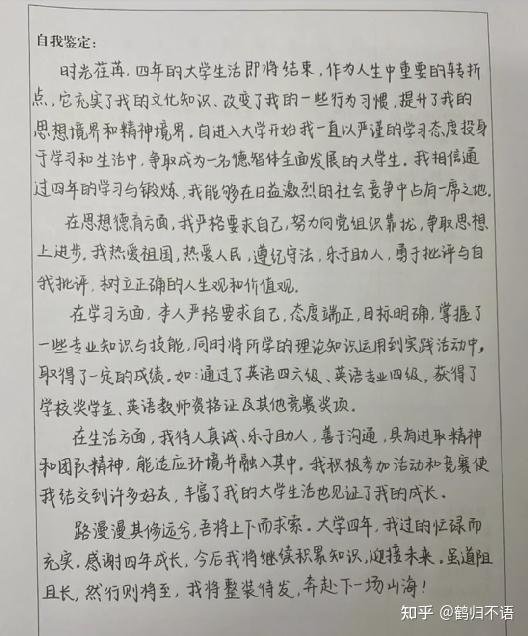 自我鉴定:
时光荏苒，四年的大学生活即将结束，作为人生中重要的转折
点，它充实了我的文化知识、改变了我的一些行为习惯，提升了我的
思想境界和精神境界。自进入大学开始我一直以严谨的学习态度投身
于学习和生活中，争取成为一名德智体全面发展的大学生。我相信通
过四年的学习与锻炼，我能够在日益激烈的社会竞争中占有一席之地。
在思想德育方面，我严格要求自己，努力向党组织靠拢，争取思想
上进步。我热爱祖国，热爱人民，遵纪守法，乐于助人，勇于批评与自
我批评，树立正确的人生观和价值观。
在学习方面，本人严格要求自己，态度端正，目标明确，掌握了
一些专业知识与技能，同时将所学的理论知识运用到实践活动中，
取得了一定的成绩。如：通过了英语四六级、英语专业四级，获得了
学校奖学金、英语教师资格证及其他竞赛奖项。
在生活方面，我待人真诚、乐于助人，善于沟通，具有进取精神
和团队精神，能适应环境并融入其中。我积极参加活动和竞赛使
我结交到许多好友，丰富了我的大学生活也见证了我的成长。
路漫漫其修远兮，吾将上下而求索。大学四年，我过的忙碌而
充实。感谢四年成长，今后我将继续积累知识，迎接未来。虽道阻
且长，然行则将至，我将整装待发，奔赴下一场山海！
知乎 @鹤归不语